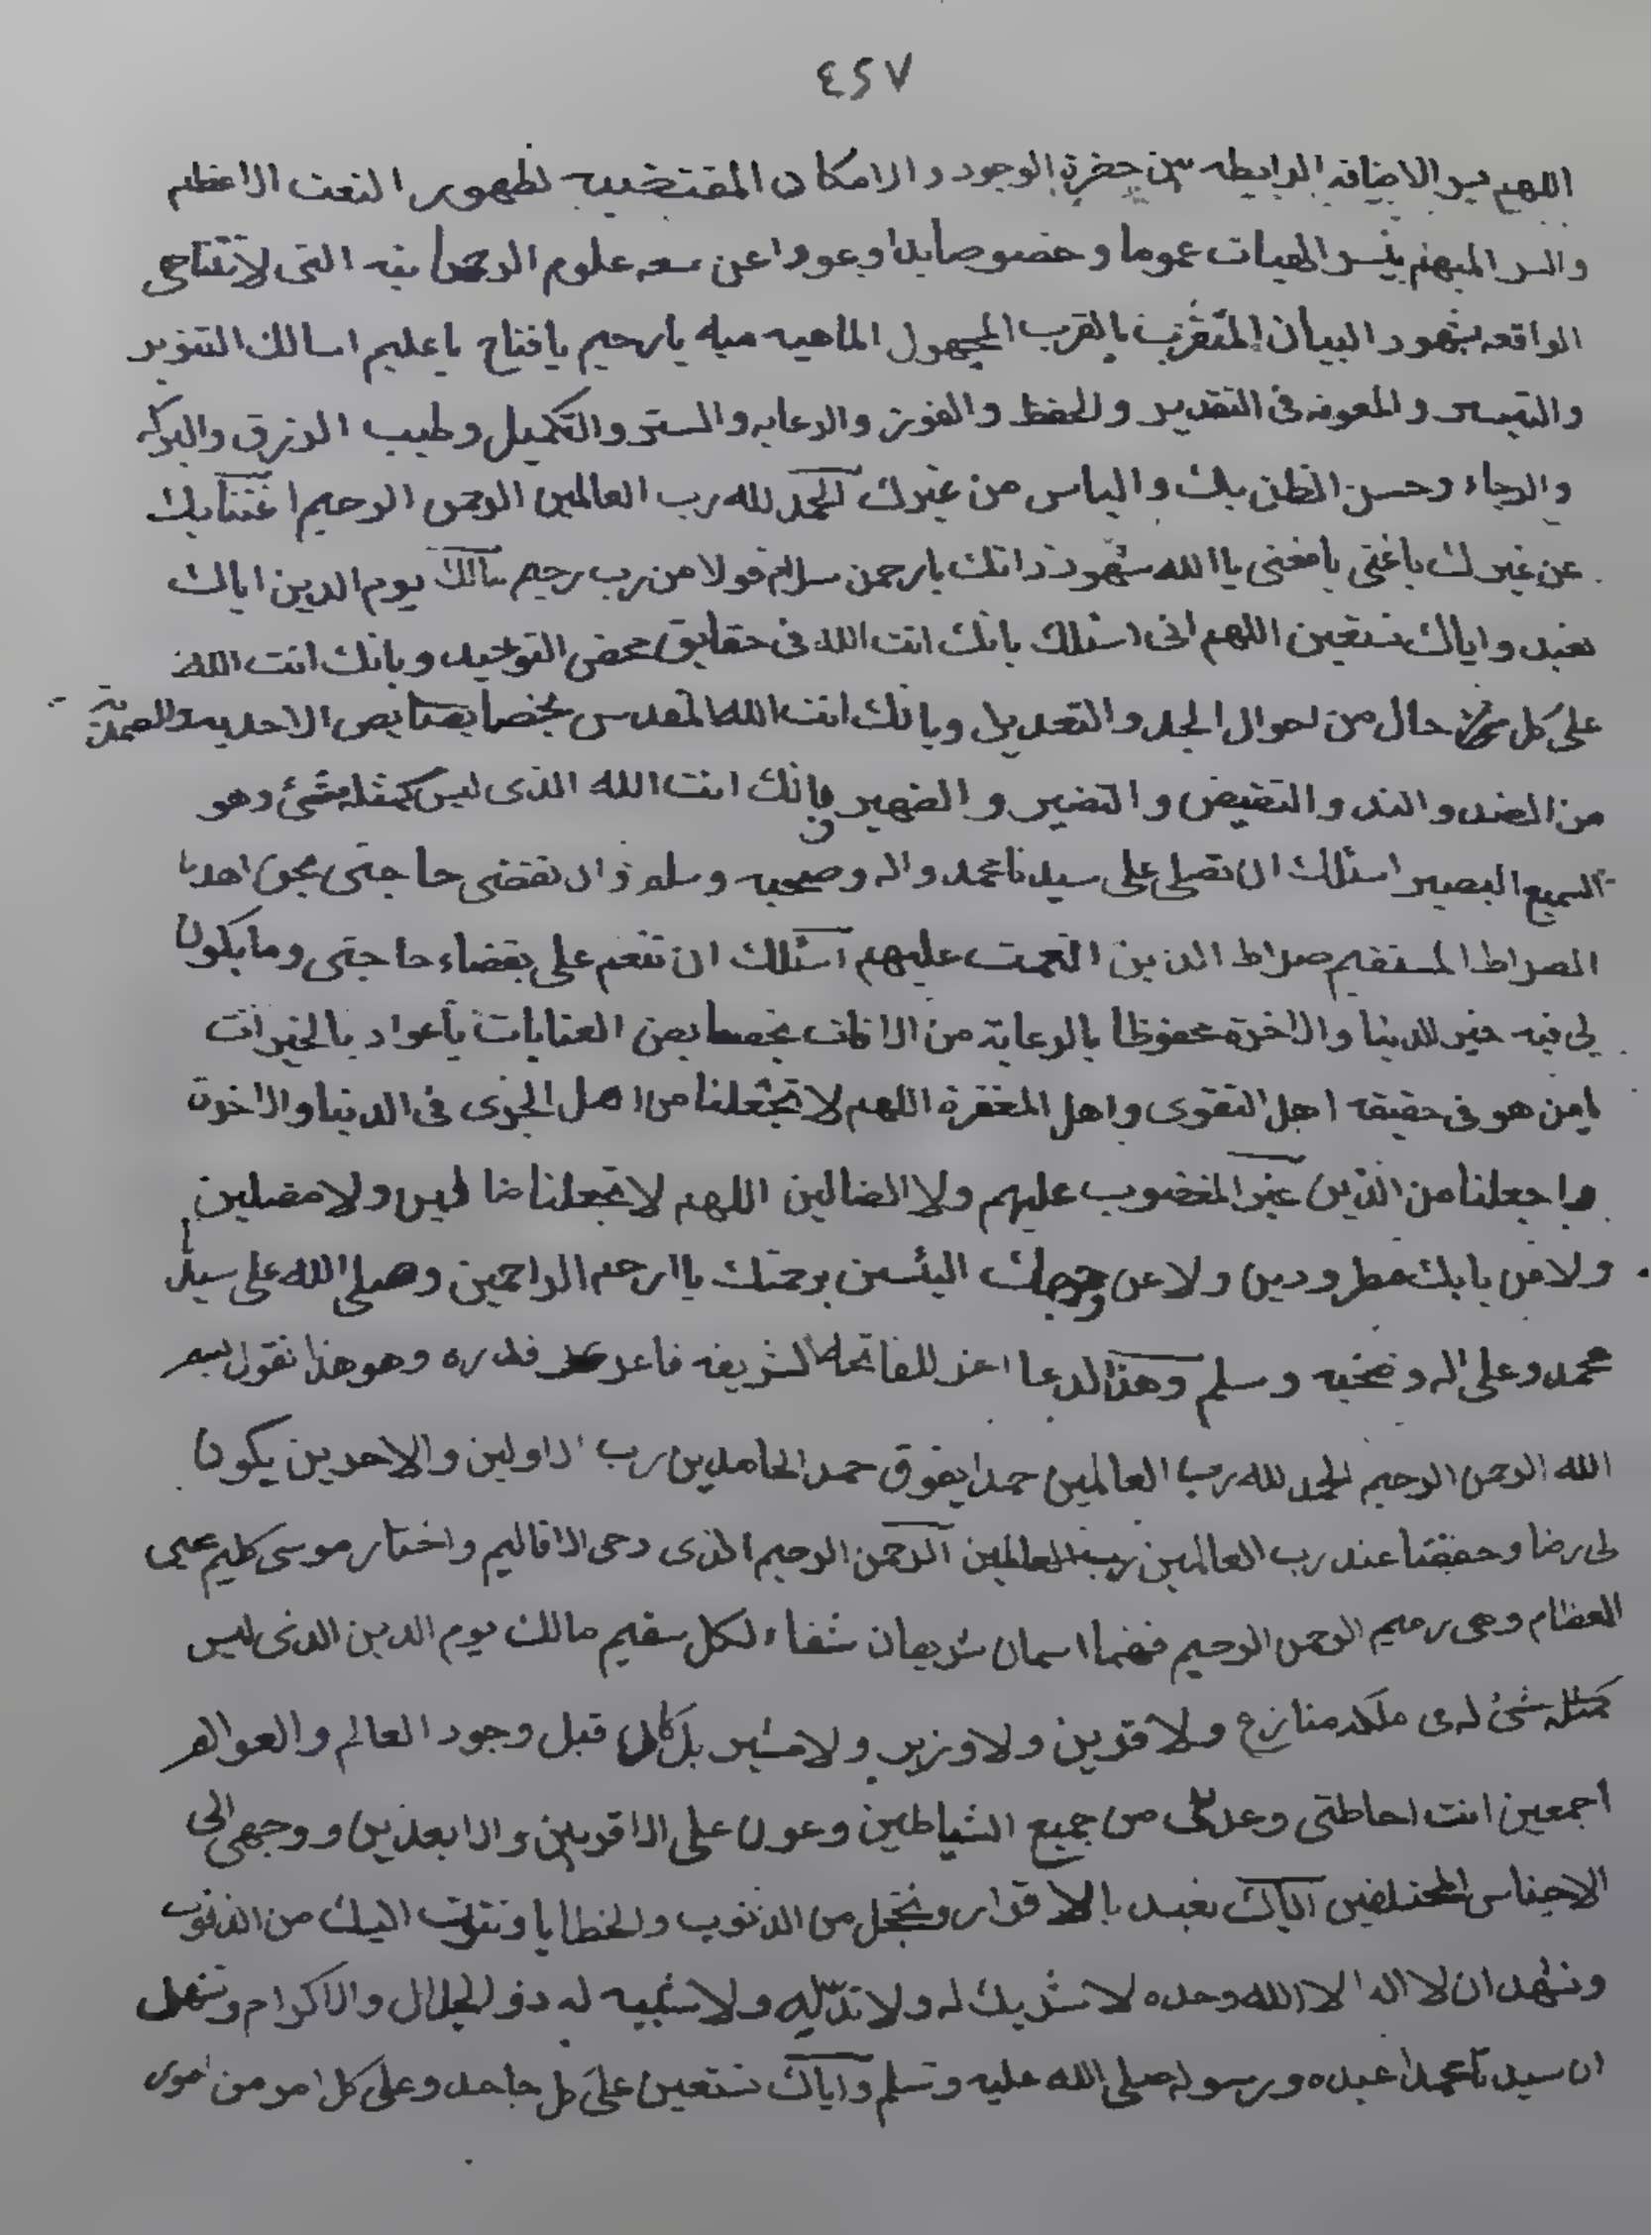 ٤٢٧
اللهم بسر الاضافه الرابطه بين حضرة الوجود والامكان المقتضيه لظهور النعت الاعظم
والسر المبهم بنسر الهيات عموما وخصوصا بدا وعودا عن سعه علوم الرحمانيه التى لا تتناهى
الواقعه شهود البيان المتقرب بالقرب المجهول الماهيه يارحيم يافتاح ياعليم اسالك التنوير
والتيسير والمعونه فى التقدير والحفظ والفوز والرعايه والستر والتكميل وطيب الرزق والبركه
والرجاء وحسن الظن بك والياس من غيرك الحمد لله رب العالمين الرحمن الرحيم اغننا بك
عن غيرك ياغنى يامغنى ياالله شهود ذاتك يارحمن سلام قولا من رب رحيم مالك يوم الدين اياك
نعبد واياك نستعين اللهم انى اسئلك بانك انت الله فى حقايق محض التوحيد وبانك انت الله
على كل حال من احوال الجد والتعديل وبانك انت الله المقدس بخصايص الاحديه والصمديه
من الضد والند والنقيض والنضير والضهير وبانك انت الله الذى ليس كمثله شئ وهو
السميع البصير اسئلك ان تصلى على سيدنا محمد واله وصحبه وسلم وان تقضى حاجتى بحق اهدنا
الصراط المستقيم صراط الذين انعمت عليهم اسئلك ان تنعم على بقضاء حاجتى ومايكون
لى فيه خير للدنيا والاخرة محفوظا بالرعاية من الافات بخصايص العنايات ياعواد بالخيرات
يامن هو فى حقيقه اهل التقوى واهل المغفرة اللهم لا تجعلنا من اهل الخزى فى الدنيا والاخرة
واجعلنا من الذين غير المغضوب عليهم ولا الضالين اللهم لا تجعلنا ضالين ولا مضلين
ولا من بابك مطرودين ولا عن وجهك اليئسين برحمتك ياارحم الراحمين وصلى الله على سيدنا
محمد وعلى اله وصحبه وسلم وهذا الدعا اعز للفاتحه الشريفه فاعرف قدره وهو هذا تقول بسم
الله الرحمن الرحيم الحمد لله رب العالمين حمدا يفوق حمد الحامدين رب الاولين والاخرين يكون
لى رضا وحفظا عند رب العالمين رب العالمين الرحمن الرحيم الذى دحى الاقاليم واختار موسى كليم محيى
العظام وهى رميم الرحمن الرحيم فهما اسمان شريفان شفاء لكل سقيم مالك يوم الدين الذى ليس
كمثله شئ له فى ملكه منازع ولا قرين ولا وزير ولا مشير بل كان قبل وجود العالم والعوالم
اجمعين انت احاطتى وعدتى من جميع الشياطين وعون على الاقربين والابعدين ووجهى الى
الاجناس المختلفين اياك نعبد بالاقرار ونخجل من الذنوب والخطايا ونتوب اليك من الذنوب
ونشهد ان لا اله الا الله وحده لا شريك له ولا ند له ولا شبيه له ذو الجلال والاكرام ونشهد
ان سيدنا محمدا عبده ورسوله صلى الله عليه وسلم واياك نستعين على كل حاجه وعلى كل امر من امور